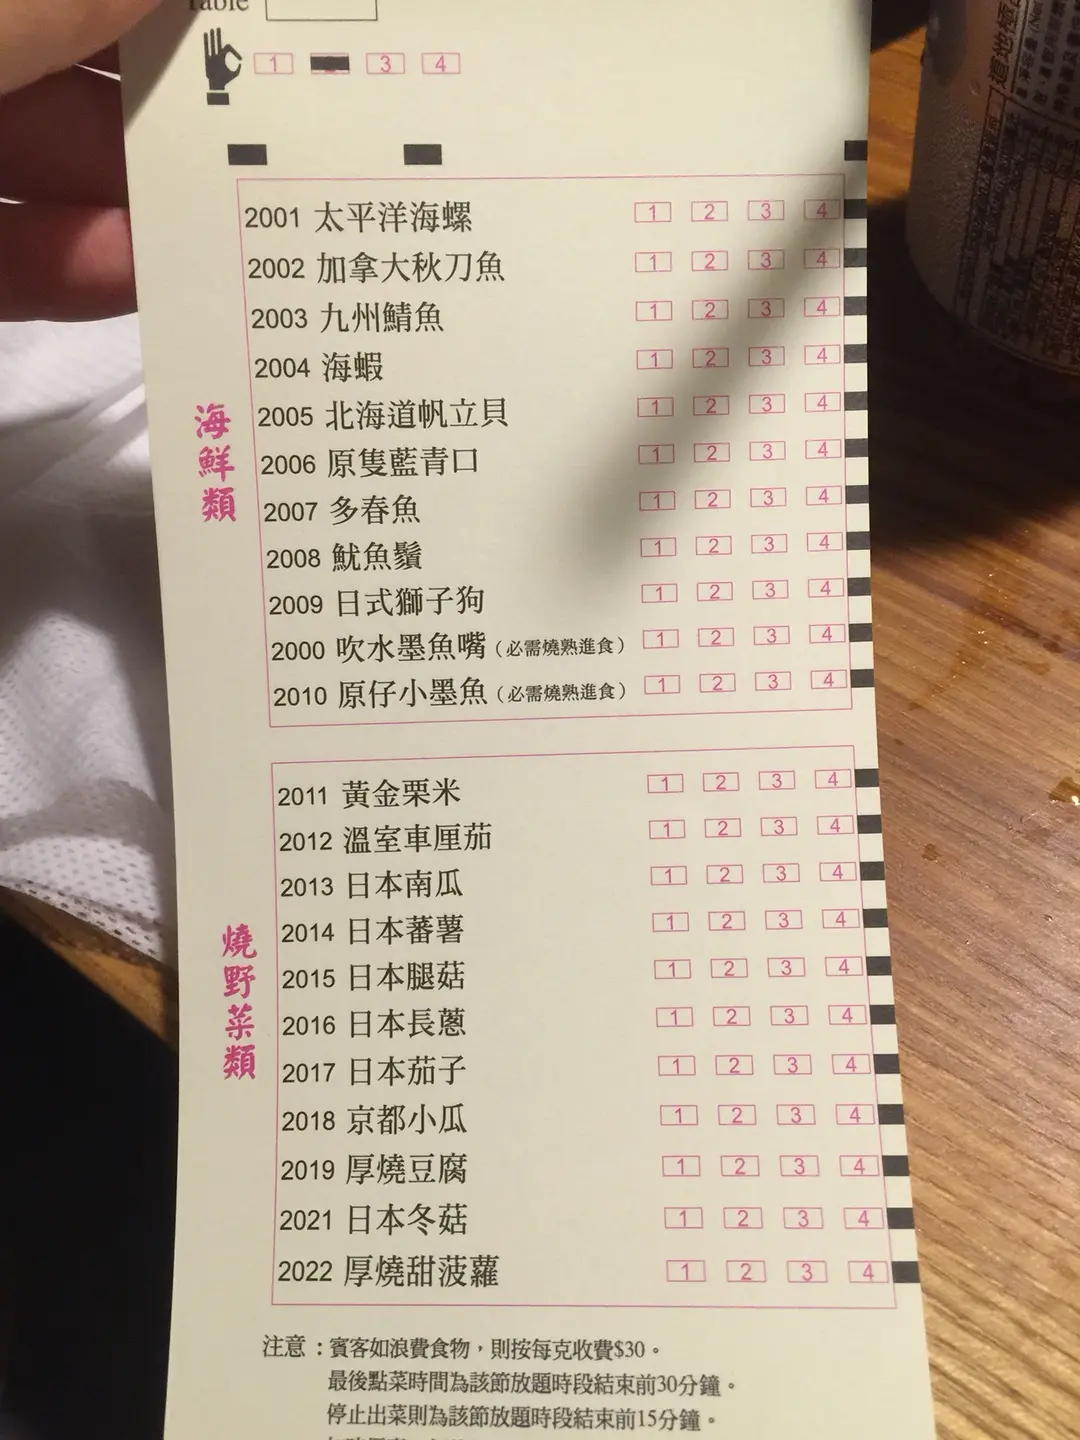 Table
1 3 4
2001 太平洋海螺 1 2 3 4
2002 加拿大秋刀魚 1 2 3 4
2003 九州鯖魚 1 2 3 4
2004 海蝦 1 2 3 4
2005 北海道帆立貝 1 2 3 4
2006 原隻藍青口 1 2 3 4
2007 多春魚 1 2 3 4
2008 魷魚鬚 1 2 3 4
2009 日式獅子狗 1 2 3 4
2000 吹水墨魚嘴(必需燒熟進食) 1 2 3 4
2010 原仔小墨魚(必需燒熟進食) 1 2 3 4
海鮮類
2011 黃金粟米 1 2 3 4
2012 溫室車厘茄 1 2 3 4
2013 日本南瓜 1 2 3 4
2014 日本蕃薯 1 2 3 4
2015 日本腿菇 1 2 3 4
2016 日本長蔥 1 2 3 4
2017 日本茄子 1 2 3 4
2018 京都小瓜 1 2 3 4
2019 厚燒豆腐 1 2 3 4
2021 日本冬菇 1 2 3 4
2022 厚燒甜菠蘿 1 2 3 4
燒野菜類
注意：賓客如浪費食物，則按每克收費$30。
最後點菜時間為該節放題時段結束前30分鐘。
停止出菜則為該節放題時段結束前15分鐘。
道地極品